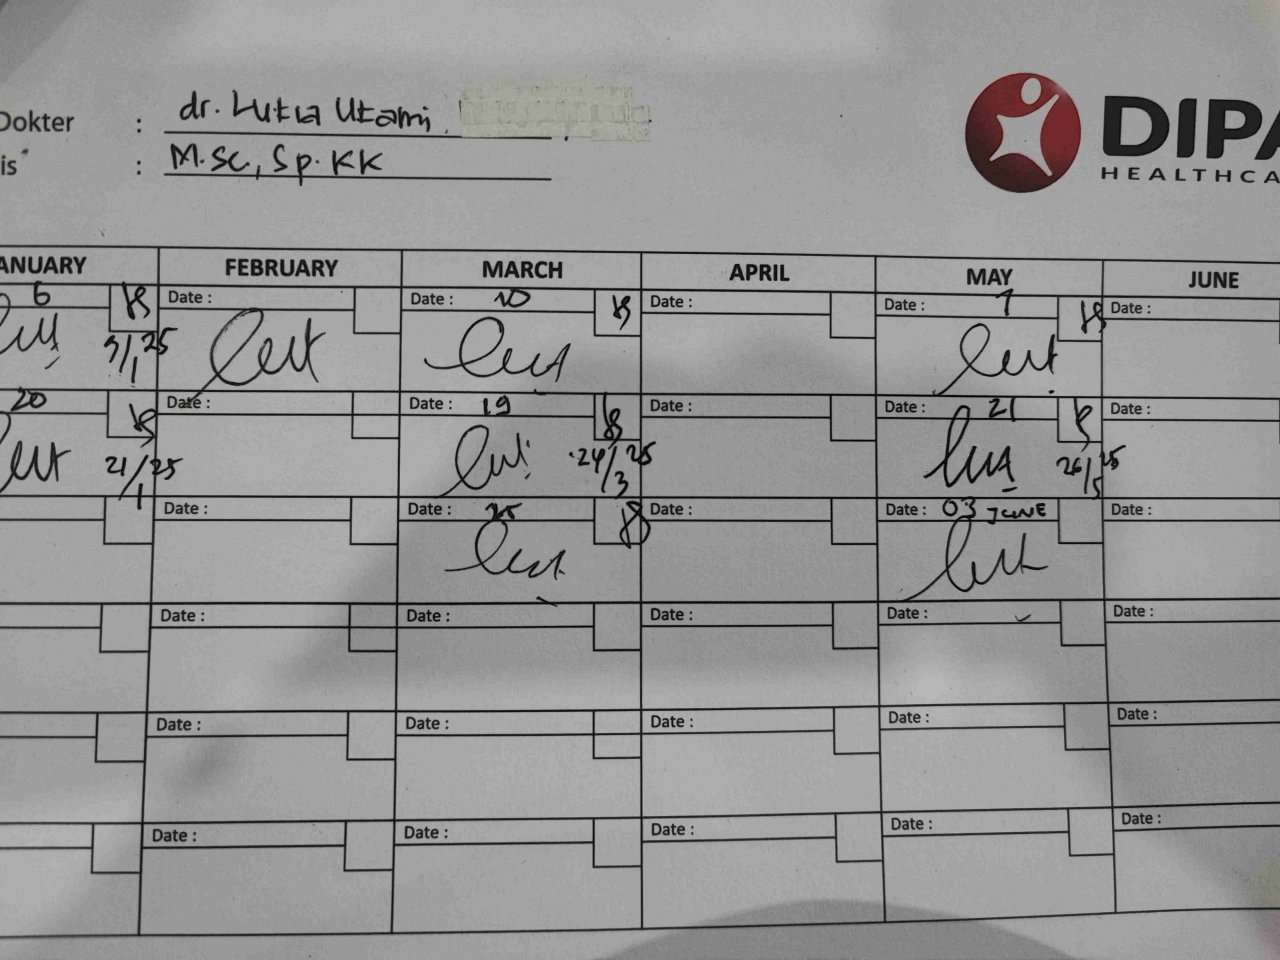 Dokter : dr. Lutia Utami
is* : M.Sc, Sp.KK
DIPA
HEALTHCA
ANUARY FEBRUARY MARCH APRIL MAY JUNE
6 Date : Date : 10 Date : Date : 7 Date :
9/1 25
20 Date : Date : 19 Date : Date : 21 Date :
21/1 25 24/3 25 26/5 25
Date : Date : 25 Date : Date : 03 JUNE Date :
Date : Date : Date : Date : Date :
Date : Date : Date : Date : Date :
Date : Date : Date : Date : Date :